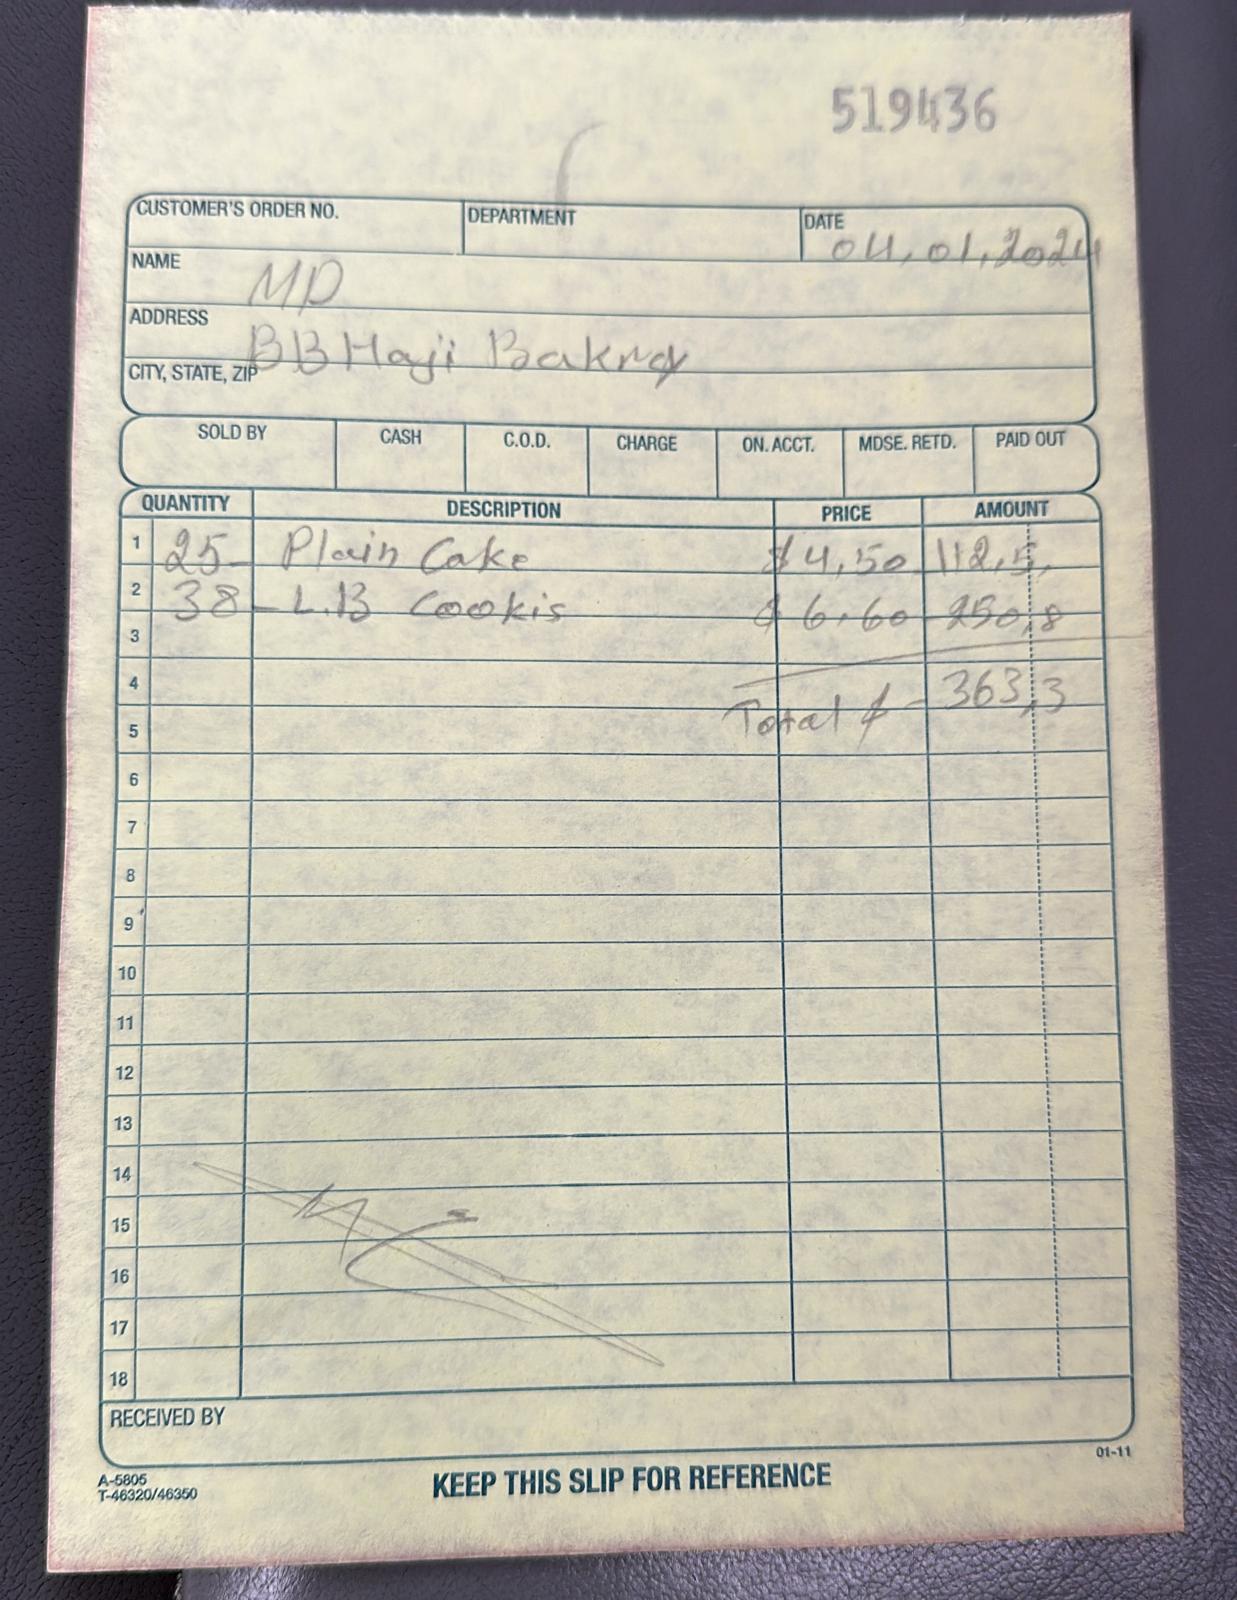 519436
CUSTOMER'S ORDER NO. DEPARTMENT DATE 04,01,2024
NAME MD
ADDRESS BB Haji Bakry
CITY, STATE, ZIP
SOLD BY CASH C.O.D. CHARGE ON. ACCT. MDSE. RETD. PAID OUT
QUANTITY DESCRIPTION PRICE AMOUNT
1 25- Plain Cake $4,50 112,5,
2 38- L.B Cookis $ 6.60 250,8
3
4 Total $ - 363,3
5
6
7
8
9
10
11
12
13
14
15
16
17
18
RECEIVED BY
A-5805
T-46320/46350
KEEP THIS SLIP FOR REFERENCE
01-11